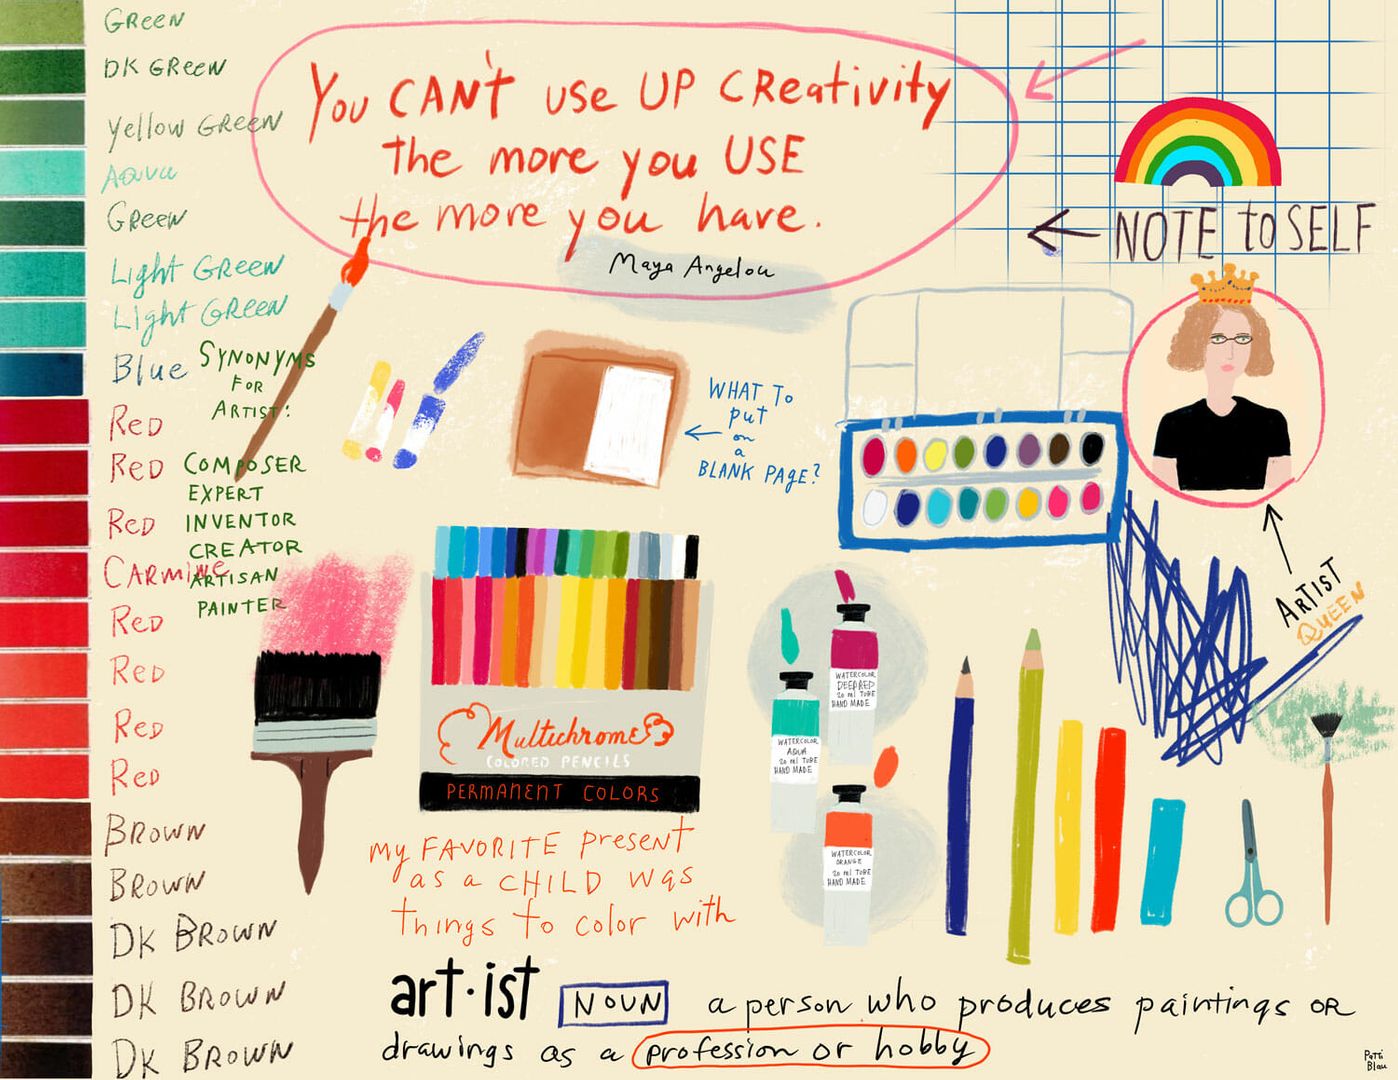 GReeN
DK GReeN
Yellow GReeN
Aqua
GReeN
Light GReeN
Light GReeN
Blue
Red
Red
Red
CARmiNe
Red
Red
Red
Red
BROWN
BROWN
DK BROWN
DK BROWN
DK BROWN
You CAN't use UP CReativity
the more you USE
the more you have.
Maya Angelou
NOTE to SELF
SYNONYMS
FOR
ARTIST:
COMPOSER
EXPERT
INVENTOR
CREATOR
ARTISAN
PAINTER
WHAT To
put
on
a
BLANK PAGE?
ARTIST
QUEEN
Multichrome
COLORED PENCILS
PERMANENT COLORS
WATERCOLOR
DEEP RED
20 ml TUBE
HAND MADE
WATERCOLOR
AQUA
20 ml TUBE
HAND MADE
WATERCOLOR
ORANGE
20 ml TUBE
HAND MADE
my FAVORITE present
as a CHILD was
things to color with
art·ist NOUN a person who produces paintings OR
drawings as a profession or hobby
Patti
Blau